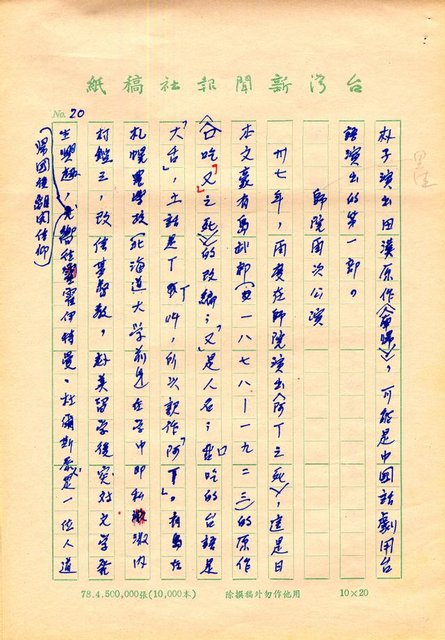 台灣新聞報社稿紙
No. 20
子演出田漢原作《南歸》，可能是中國話劇用台
語演出的第一部。
師院兩次公演
卅七年，兩度在師院演出《阿丁之死》，這是日
本文豪有島武郎（一八七八—一九二三）的原作
吃「又」之死》的改編；「又」是人名；吃的台語是
「大舌」，土話是丁叫，所以訳作「阿丁」。有島在
札幌農學校（北海道大学前身）在学中即私淑內
村鑑三，改信基督教，赴美留學後突對文學發
生興趣，嚮往霍伊特曼、杜爾斯是一位人道
（歸國後離開信仰）
78.4.500,000張(10,000本)
除撰稿外勿作他用
10×20